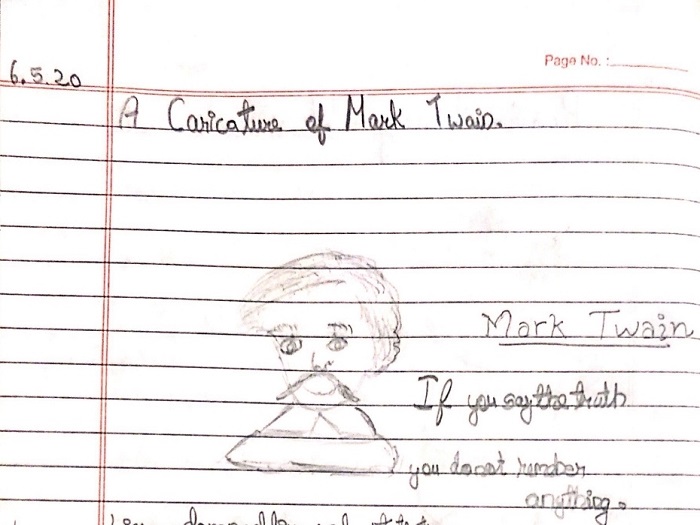 Page No. :
6.5.20
A Caricature of Mark Twain.
Mark Twain
If you say the truth
you donot
anything.